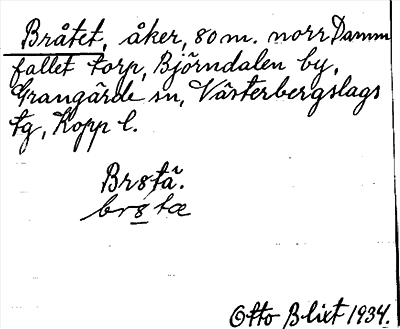 Bråtet, åker, 80 m. norr Damm
fallet torp, Björndalen by,
Grangärde sn, Västerbergslags
tg, Kopp l.
Br8tä.
br8tæ
Otto Blixt 1934.